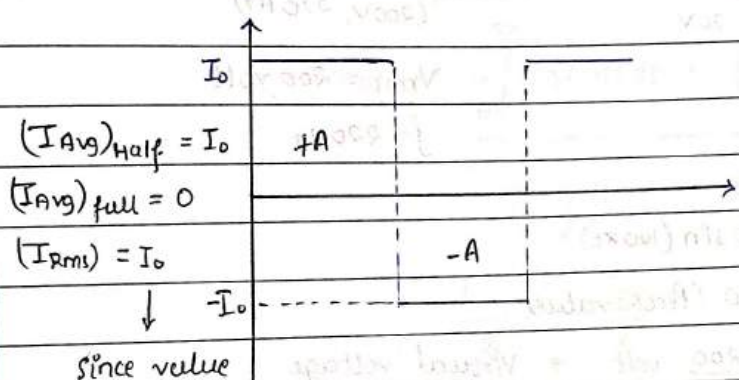 I₀
(I Avg)Half = I₀ +A
(I Avg)full = 0
(I Rms) = I₀ -A
-I₀
since value